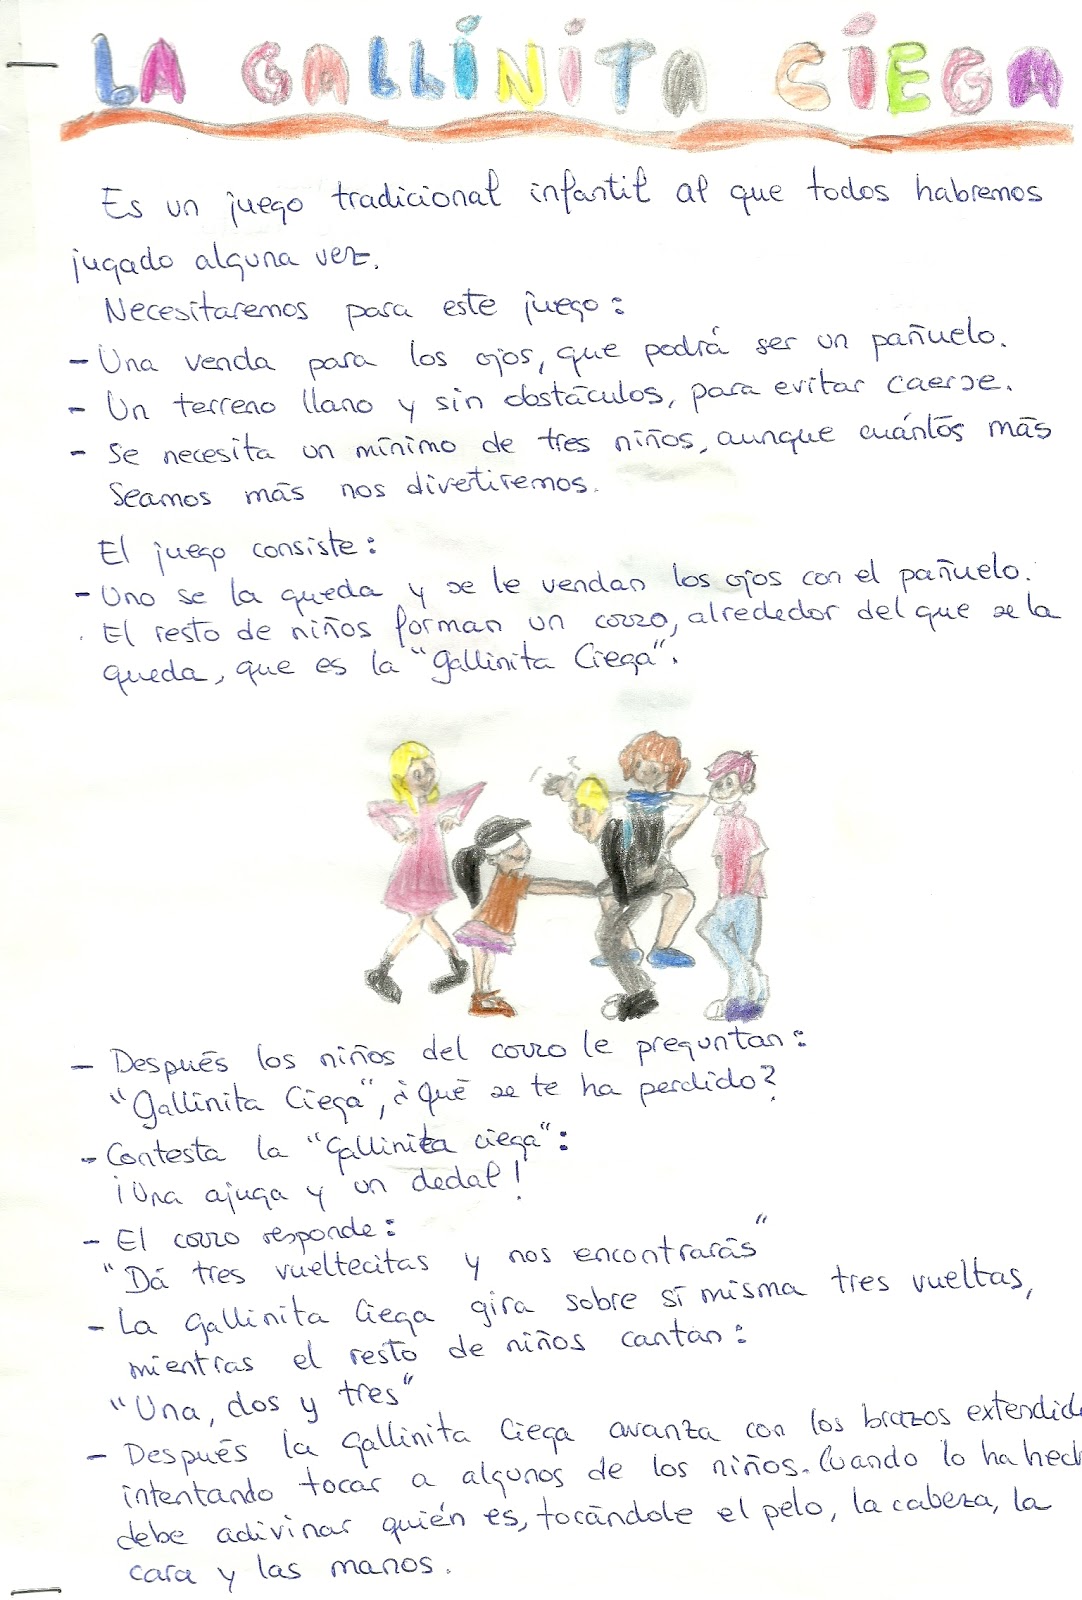 LA GALLINITA CIEGA
Es un juego tradicional infantil al que todos habremos
jugado alguna vez.
Necesitaremos para este juego:
- Una venda para los ojos, que podrá ser un pañuelo.
- Un terreno llano y sin obstáculos, para evitar caerse.
- Se necesita un mínimo de tres niños, aunque cuántos más
seamos más nos divertiremos.
El juego consiste:
- Uno se la queda y se le vendan los ojos con el pañuelo.
. El resto de niños forman un corro, alrededor del que se la
queda, que es la "gallinita Ciega".
- Después los niños del corro le preguntan:
"Gallinita Ciega", ¿Qué se te ha perdido?
- Contesta la "Gallinita ciega":
¡Una ajuga y un dedal!
- El corro responde:
"Dá tres vueltecitas y nos encontrarás"
- La gallinita Ciega gira sobre sí misma tres vueltas,
mientras el resto de niños cantan:
"Una, dos y tres"
- Después la gallinita Ciega avanza con los brazos extendid
intentando tocar a algunos de los niños. Cuando lo ha hech
debe adivinar quién es, tocándole el pelo, la cabeza, la
cara y las manos.